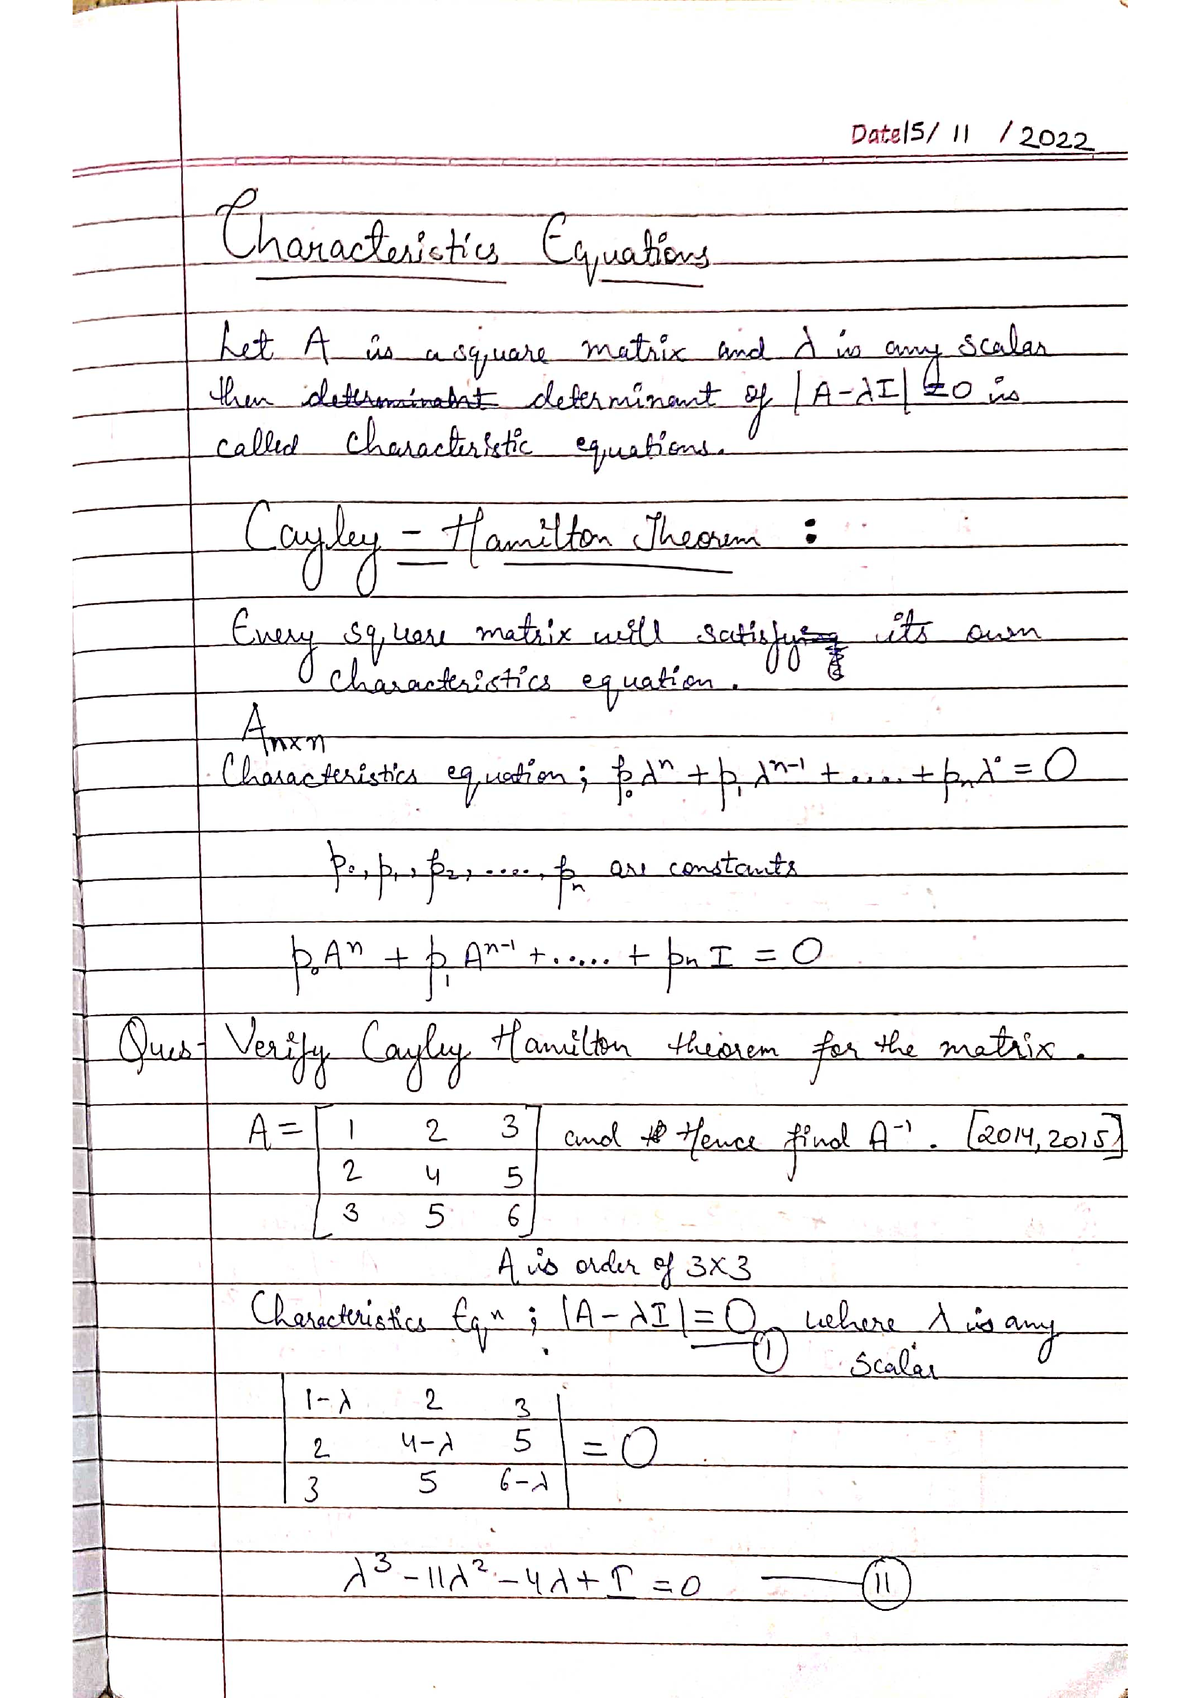 Date 15/ 11 / 2022
Characteristics Equations
Let A is a square matrix and λ is any scalar
then determinant of |A-λI| = 0 is
called characteristic equations.
Cayley - Hamilton Theorem :
Every square matrix will satisfy its own
characteristics equation.
Aₙₓₙ
Characteristics equation; p₀λⁿ + p₁λⁿ⁻¹ + ..... + pₙλ° = 0
p₀, p₁, p₂, ....., pₙ are constants
p₀Aⁿ + p₁Aⁿ⁻¹ + ..... + pₙ I = 0
Ques- Verify Cayley Hamilton theorem for the matrix.
A = [ 1 2 3 ] and Hence find A⁻¹. [2014, 2015]
2 4 5
3 5 6
A is order of 3×3
Characteristics Eqⁿ ; |A - λI| = 0 where λ is any
① scalar
| 1-λ 2 3 |
| 2 4-λ 5 | = 0
| 3 5 6-λ |
λ³ - 11λ² - 4λ + I = 0 — (11)